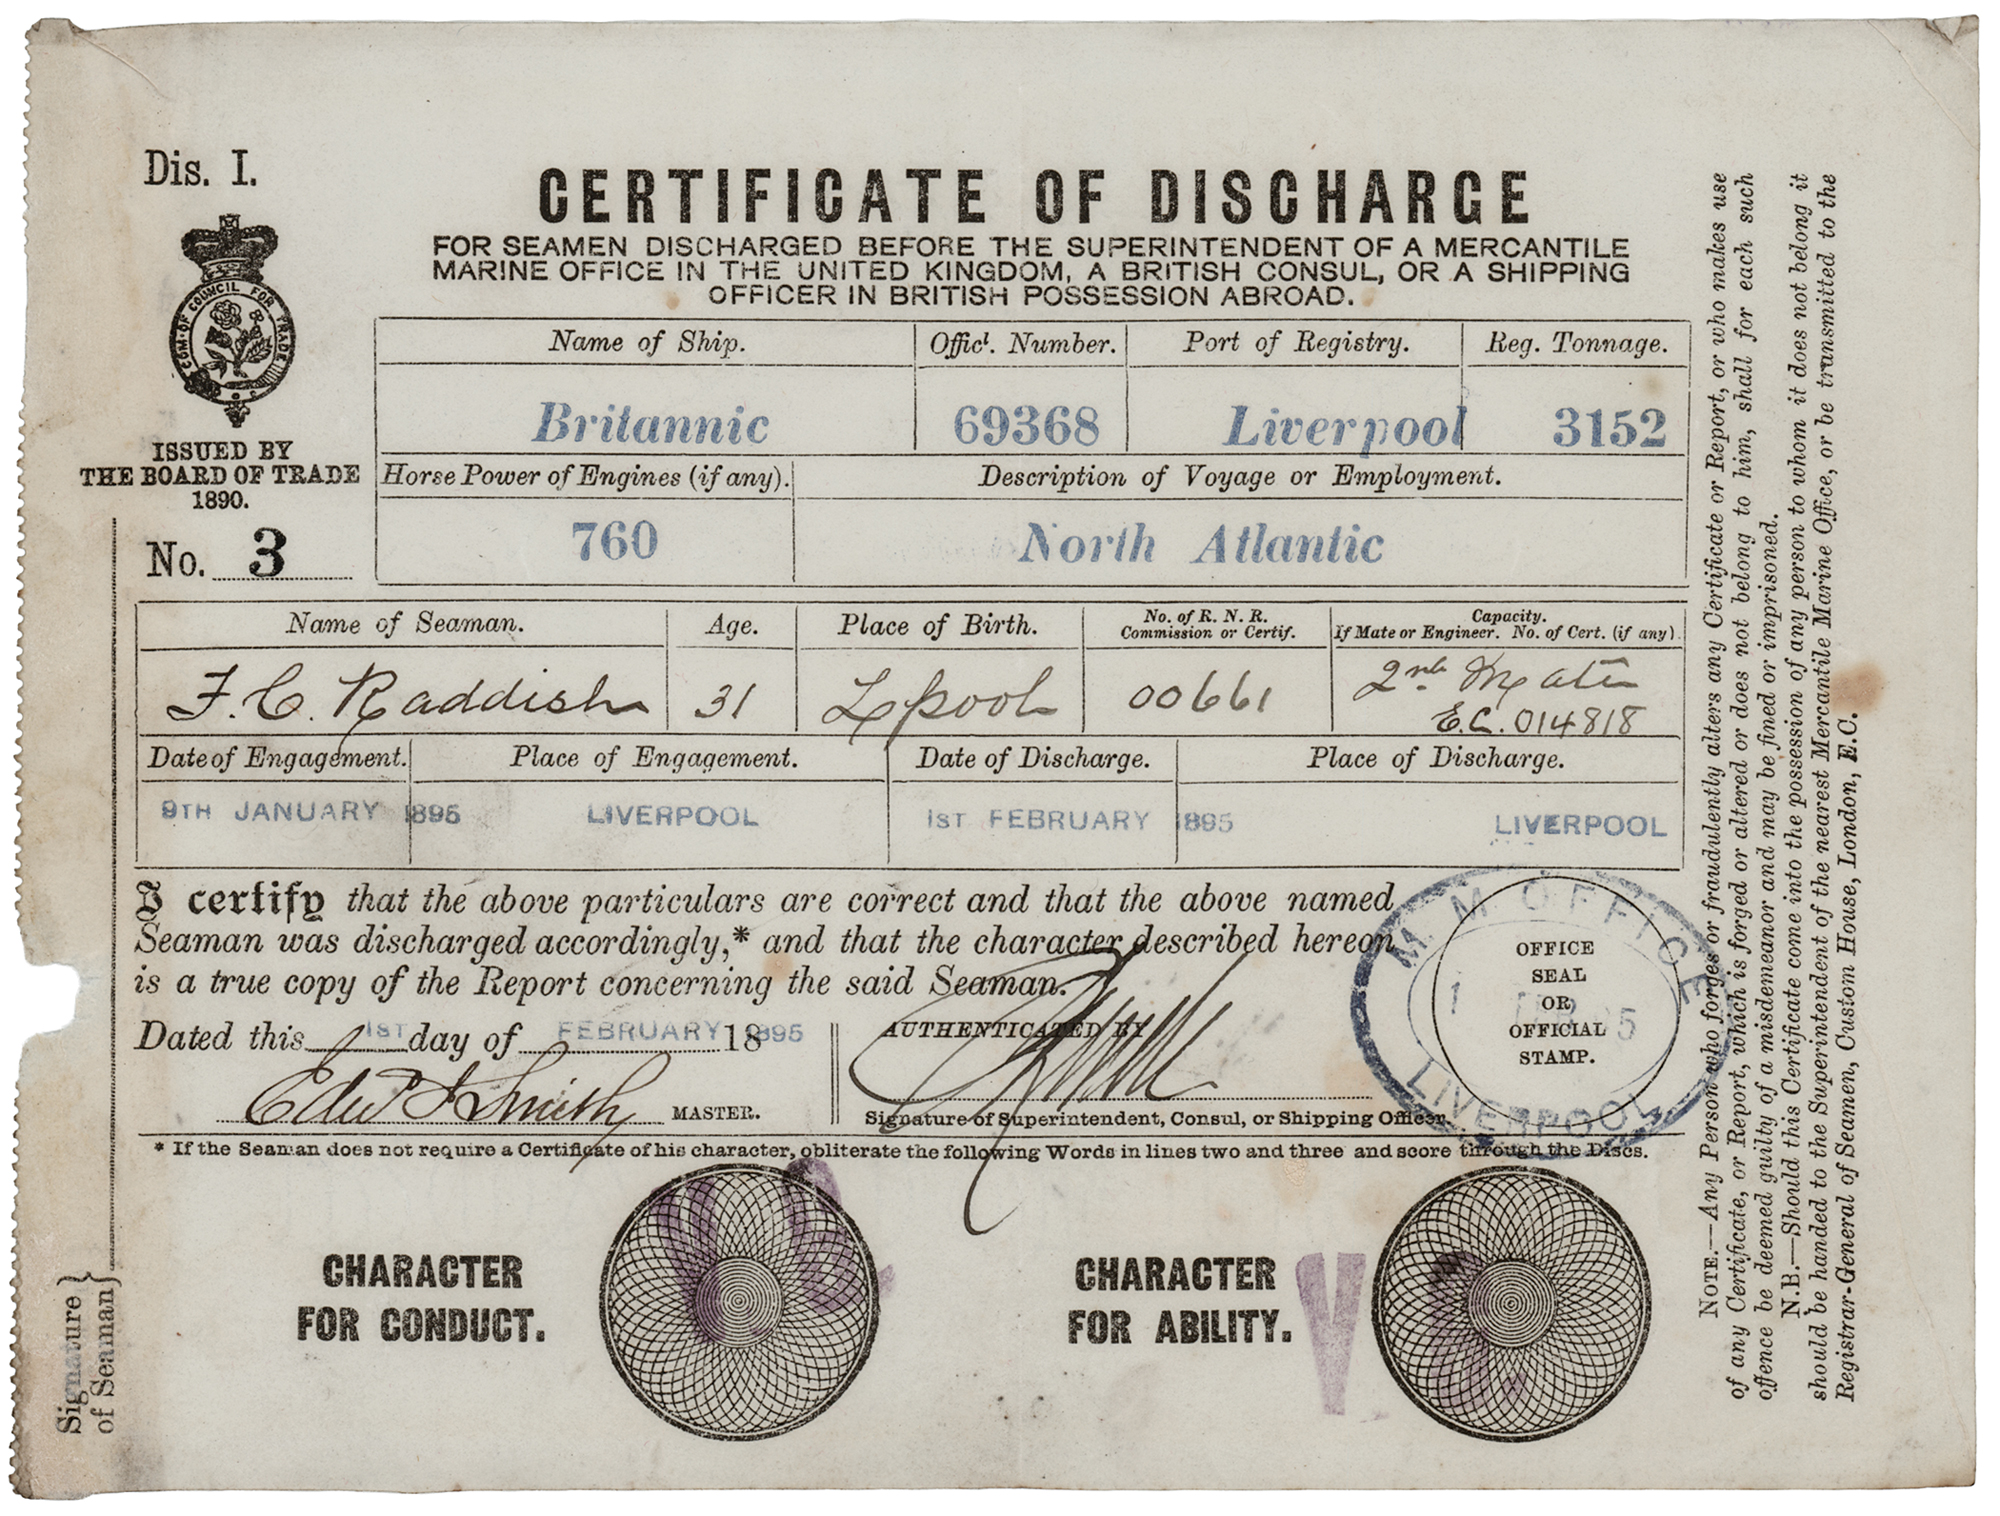 Dis. I.
CERTIFICATE OF DISCHARGE
FOR SEAMEN DISCHARGED BEFORE THE SUPERINTENDENT OF A MERCANTILE
MARINE OFFICE IN THE UNITED KINGDOM, A BRITISH CONSUL, OR A SHIPPING
OFFICER IN BRITISH POSSESSION ABROAD.
COM. OF COUNCIL FOR TRADE
ISSUED BY
THE BOARD OF TRADE
1890.
No. 3
Name of Ship. Offic¹. Number. Port of Registry. Reg. Tonnage.
Britannic 69368 Liverpool 3152
Horse Power of Engines (if any). Description of Voyage or Employment.
760 North Atlantic
Name of Seaman. Age. Place of Birth. No. of R. N. R. Commission or Certif. Capacity. If Mate or Engineer. No. of Cert. (if any).
F. C. Raddish 31 Lpool 00661 2nd Mate
E.C. 014818
Date of Engagement. Place of Engagement. Date of Discharge. Place of Discharge.
9TH JANUARY 1895 LIVERPOOL 1ST FEBRUARY 1895 LIVERPOOL
I certify that the above particulars are correct and that the above named
Seaman was discharged accordingly,* and that the character described hereon
is a true copy of the Report concerning the said Seaman.
Dated this 1ST day of FEBRUARY 18 1895
Edwd J Smith MASTER.
AUTHENTICATED BY
Signature of Superintendent, Consul, or Shipping Officer.
M. M OFFICE
LIVERPOOL
OFFICE
SEAL
OR
OFFICIAL
STAMP.
* If the Seaman does not require a Certificate of his character, obliterate the following Words in lines two and three and score through the Discs.
CHARACTER
FOR CONDUCT.
CHARACTER
FOR ABILITY.
Signature
of Seaman
NOTE.—Any Person who forges or fraudulently alters any Certificate or Report, or who makes use
of any Certificate, or Report, which is forged or altered or does not belong to him, shall for each such
offence be deemed guilty of a misdemeanor and may be fined or imprisoned.
N.B.—Should this Certificate come into the possession of any person to whom it does not belong it
should be handed to the Superintendent of the nearest Mercantile Marine Office, or be transmitted to the
Registrar-General of Seamen, Custom House, London, E.C.